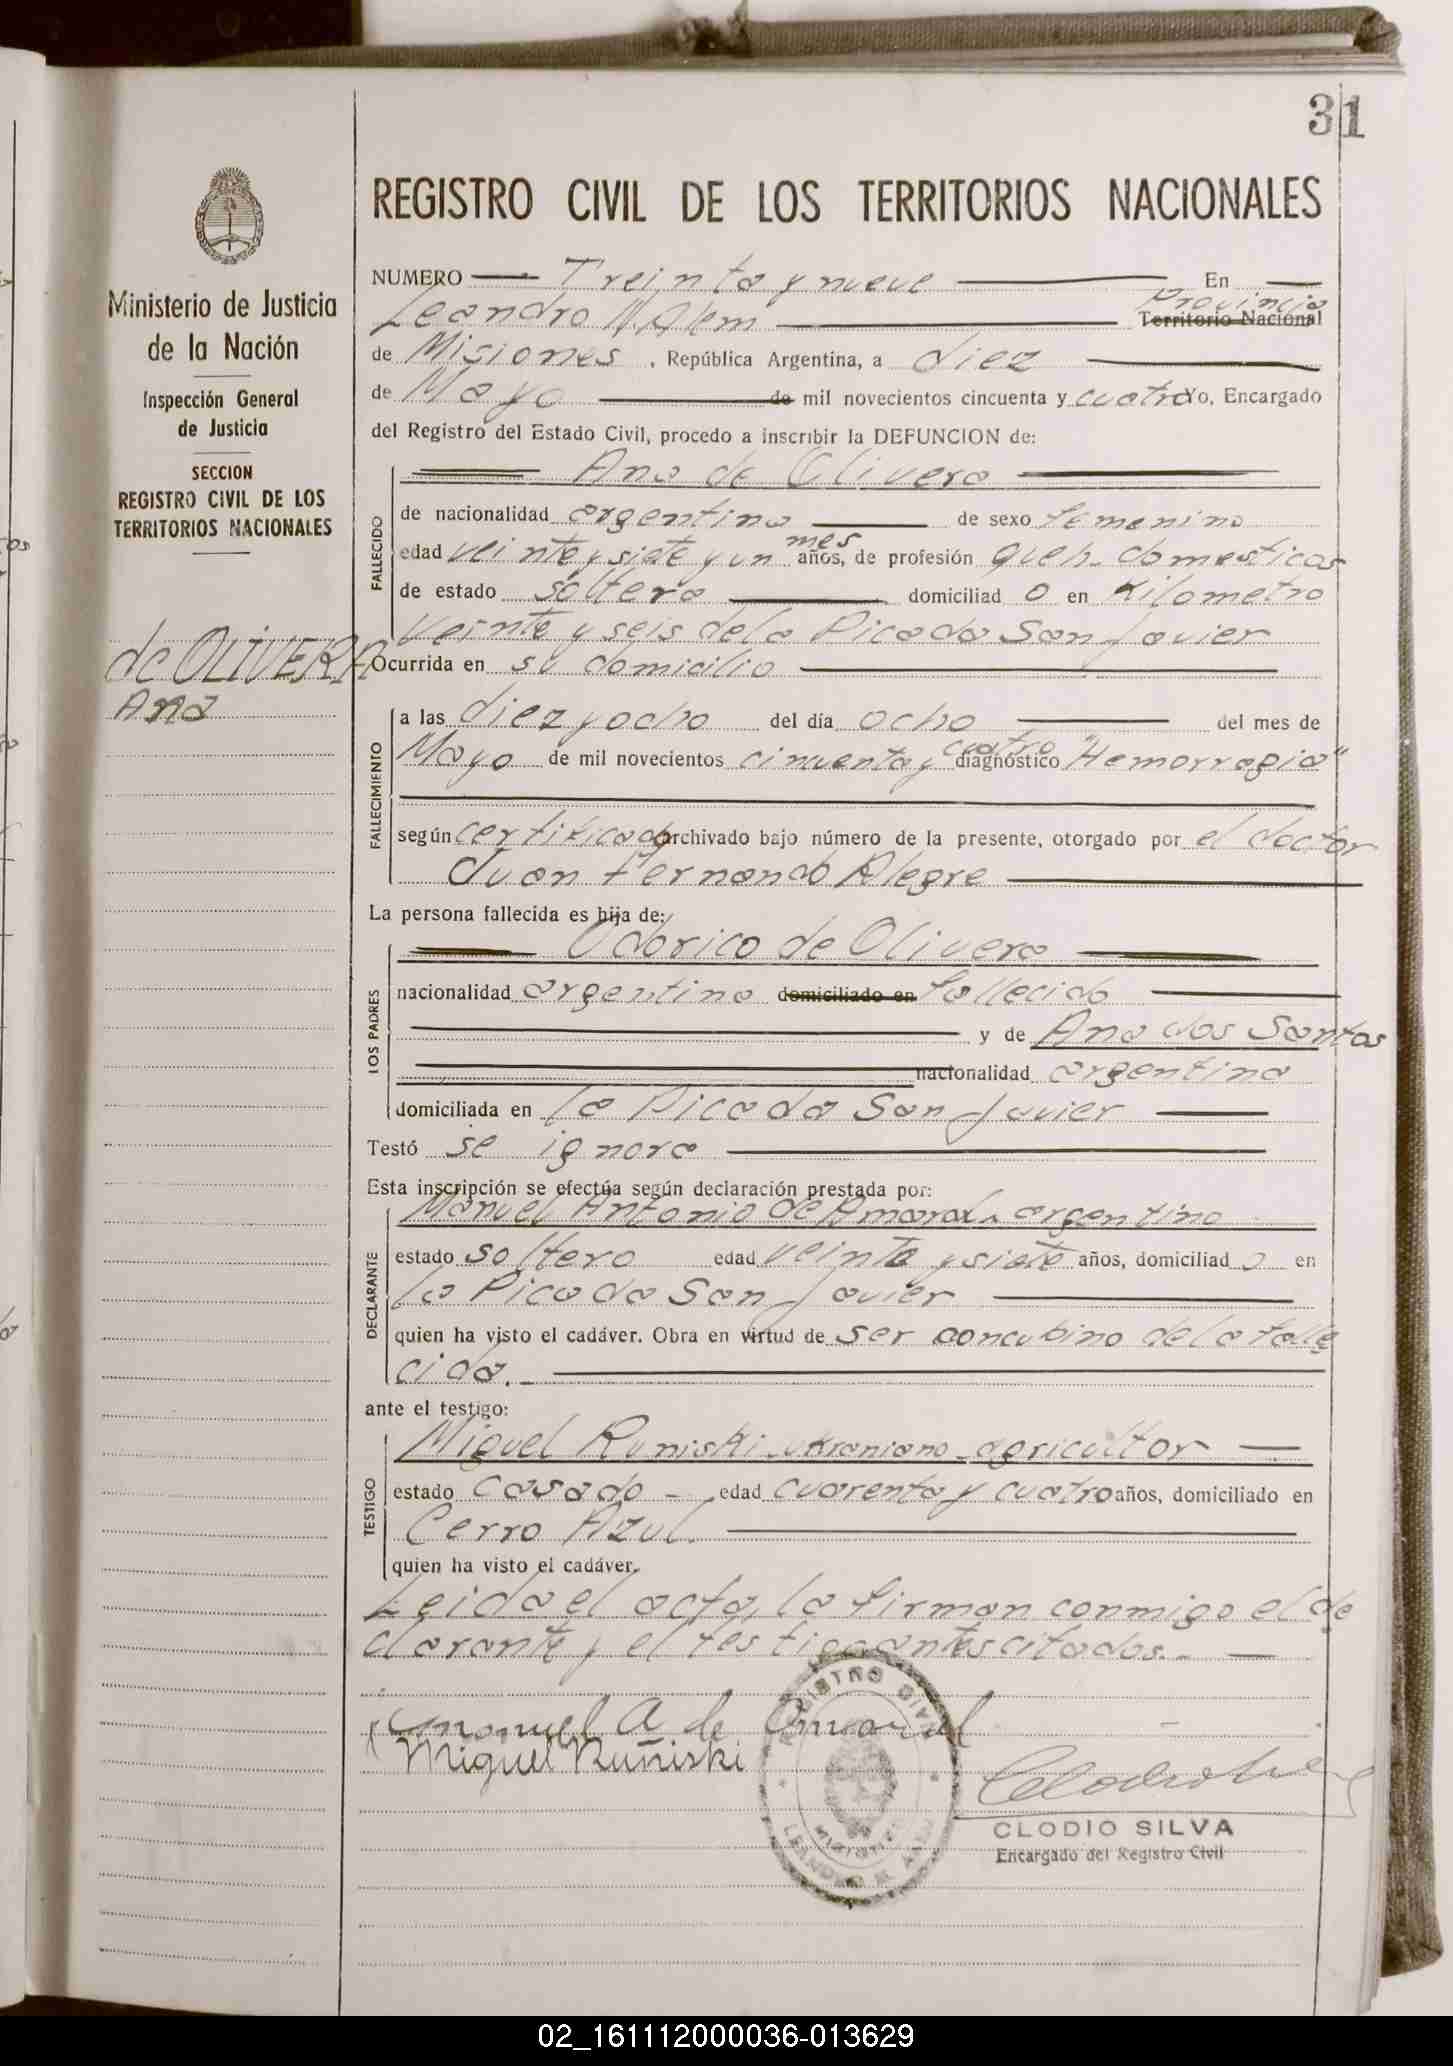 31
Ministerio de Justicia
de la Nación
Inspección General
de Justicia
SECCION
REGISTRO CIVIL DE LOS
TERRITORIOS NACIONALES
de OLIVERA
Ana
REGISTRO CIVIL DE LOS TERRITORIOS NACIONALES
NUMERO Treinta y nueve En
Leandro N. Alem Provincia Territorio Nacional
de Misiones, República Argentina, a diez
de Mayo de mil novecientos cincuenta y cuatro Yo, Encargado
del Registro del Estado Civil, procedo a inscribir la DEFUNCION de:
Ana de Olivera
FALLECIDO
de nacionalidad argentina de sexo femenino
edad veinte y siete y un mes años, de profesión queh. domesticos
de estado soltera domiciliad a en Kilometro
veinte y seis de la Picada San Javier
Ocurrida en su domicilio
FALLECIMIENTO
a las diez y ocho del día ocho del mes de
Mayo de mil novecientos cincuenta y cuatro diagnóstico "Hemorragia"
según certificado archivado bajo número de la presente, otorgado por el doctor
Juan Fernando Alegre
La persona fallecida es hija de:
LOS PADRES
Odorico de Olivera
nacionalidad argentina domiciliado en fallecido
y de Ana dos Santos
nacionalidad argentina
domiciliada en la Picada San Javier
Testó se ignora
Esta inscripción se efectúa según declaración prestada por:
DECLARANTE
Manuel Antonio de Amaral, argentino
estado soltero edad veinte y siete años, domiciliad o en
la Picada San Javier
quien ha visto el cadáver. Obra en virtud de ser concubino de la falle
cida.-
ante el testigo:
TESTIGO
Miguel Runiski - ukraniano - agricultor
estado casado - edad cuarenta y cuatro años, domiciliado en
Cerro Azul
quien ha visto el cadáver.
Leida el acta, la firman conmigo el de
clarante y el testigo antes citados.-
Manuel A de Amaral
Miguel Ruñiski
REGISTRO CIVIL
MISIONES
LEANDRO N. ALEM
CLODIO SILVA
Encargado del Registro Civil
02_161112000036-013629